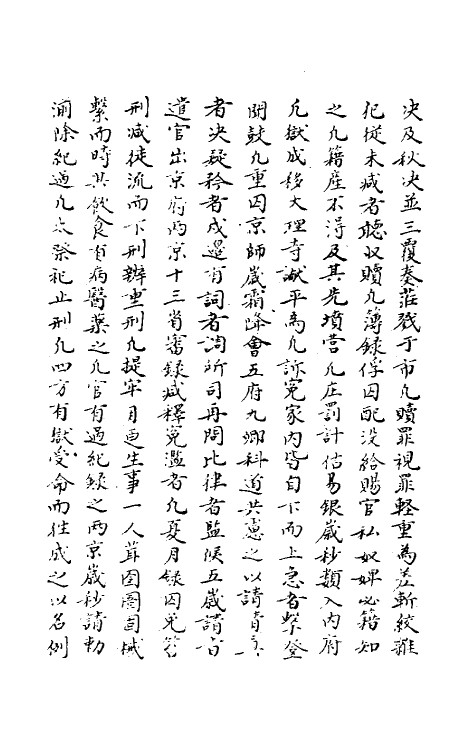 決及秋決並三覆奏訖戮于市凡贖罪視罪輕重為差斬絞雜
犯從末减者聽収贖凡簿録俘囚配沒給賜官私奴婢必籍知
之凡籍産不得及其先墳塋凡庄罰計估易銀歲杪類入内府
凡獄成移大理寺讞平焉凡訴寃家内皆自下而上急者撃登
聞鼓凡重囚京師歲霜降會五府九卿科道共慮之以請旨
者決疑矜者戍邊有詞者調所司再問比律者監候五歲請旨
遣官出京府两京十三省審録减釋寃濫者凡夏月録囚免笞
刑减徒流而下刑辦重刑凡提牢月更主事一人葺囹圄固械
繫而時其飲食有病醫藥之凡官有過紀録之两京歲杪請勅
湔除紀過凡大祭祀止刑凡四方有獄受命而往成之以名例